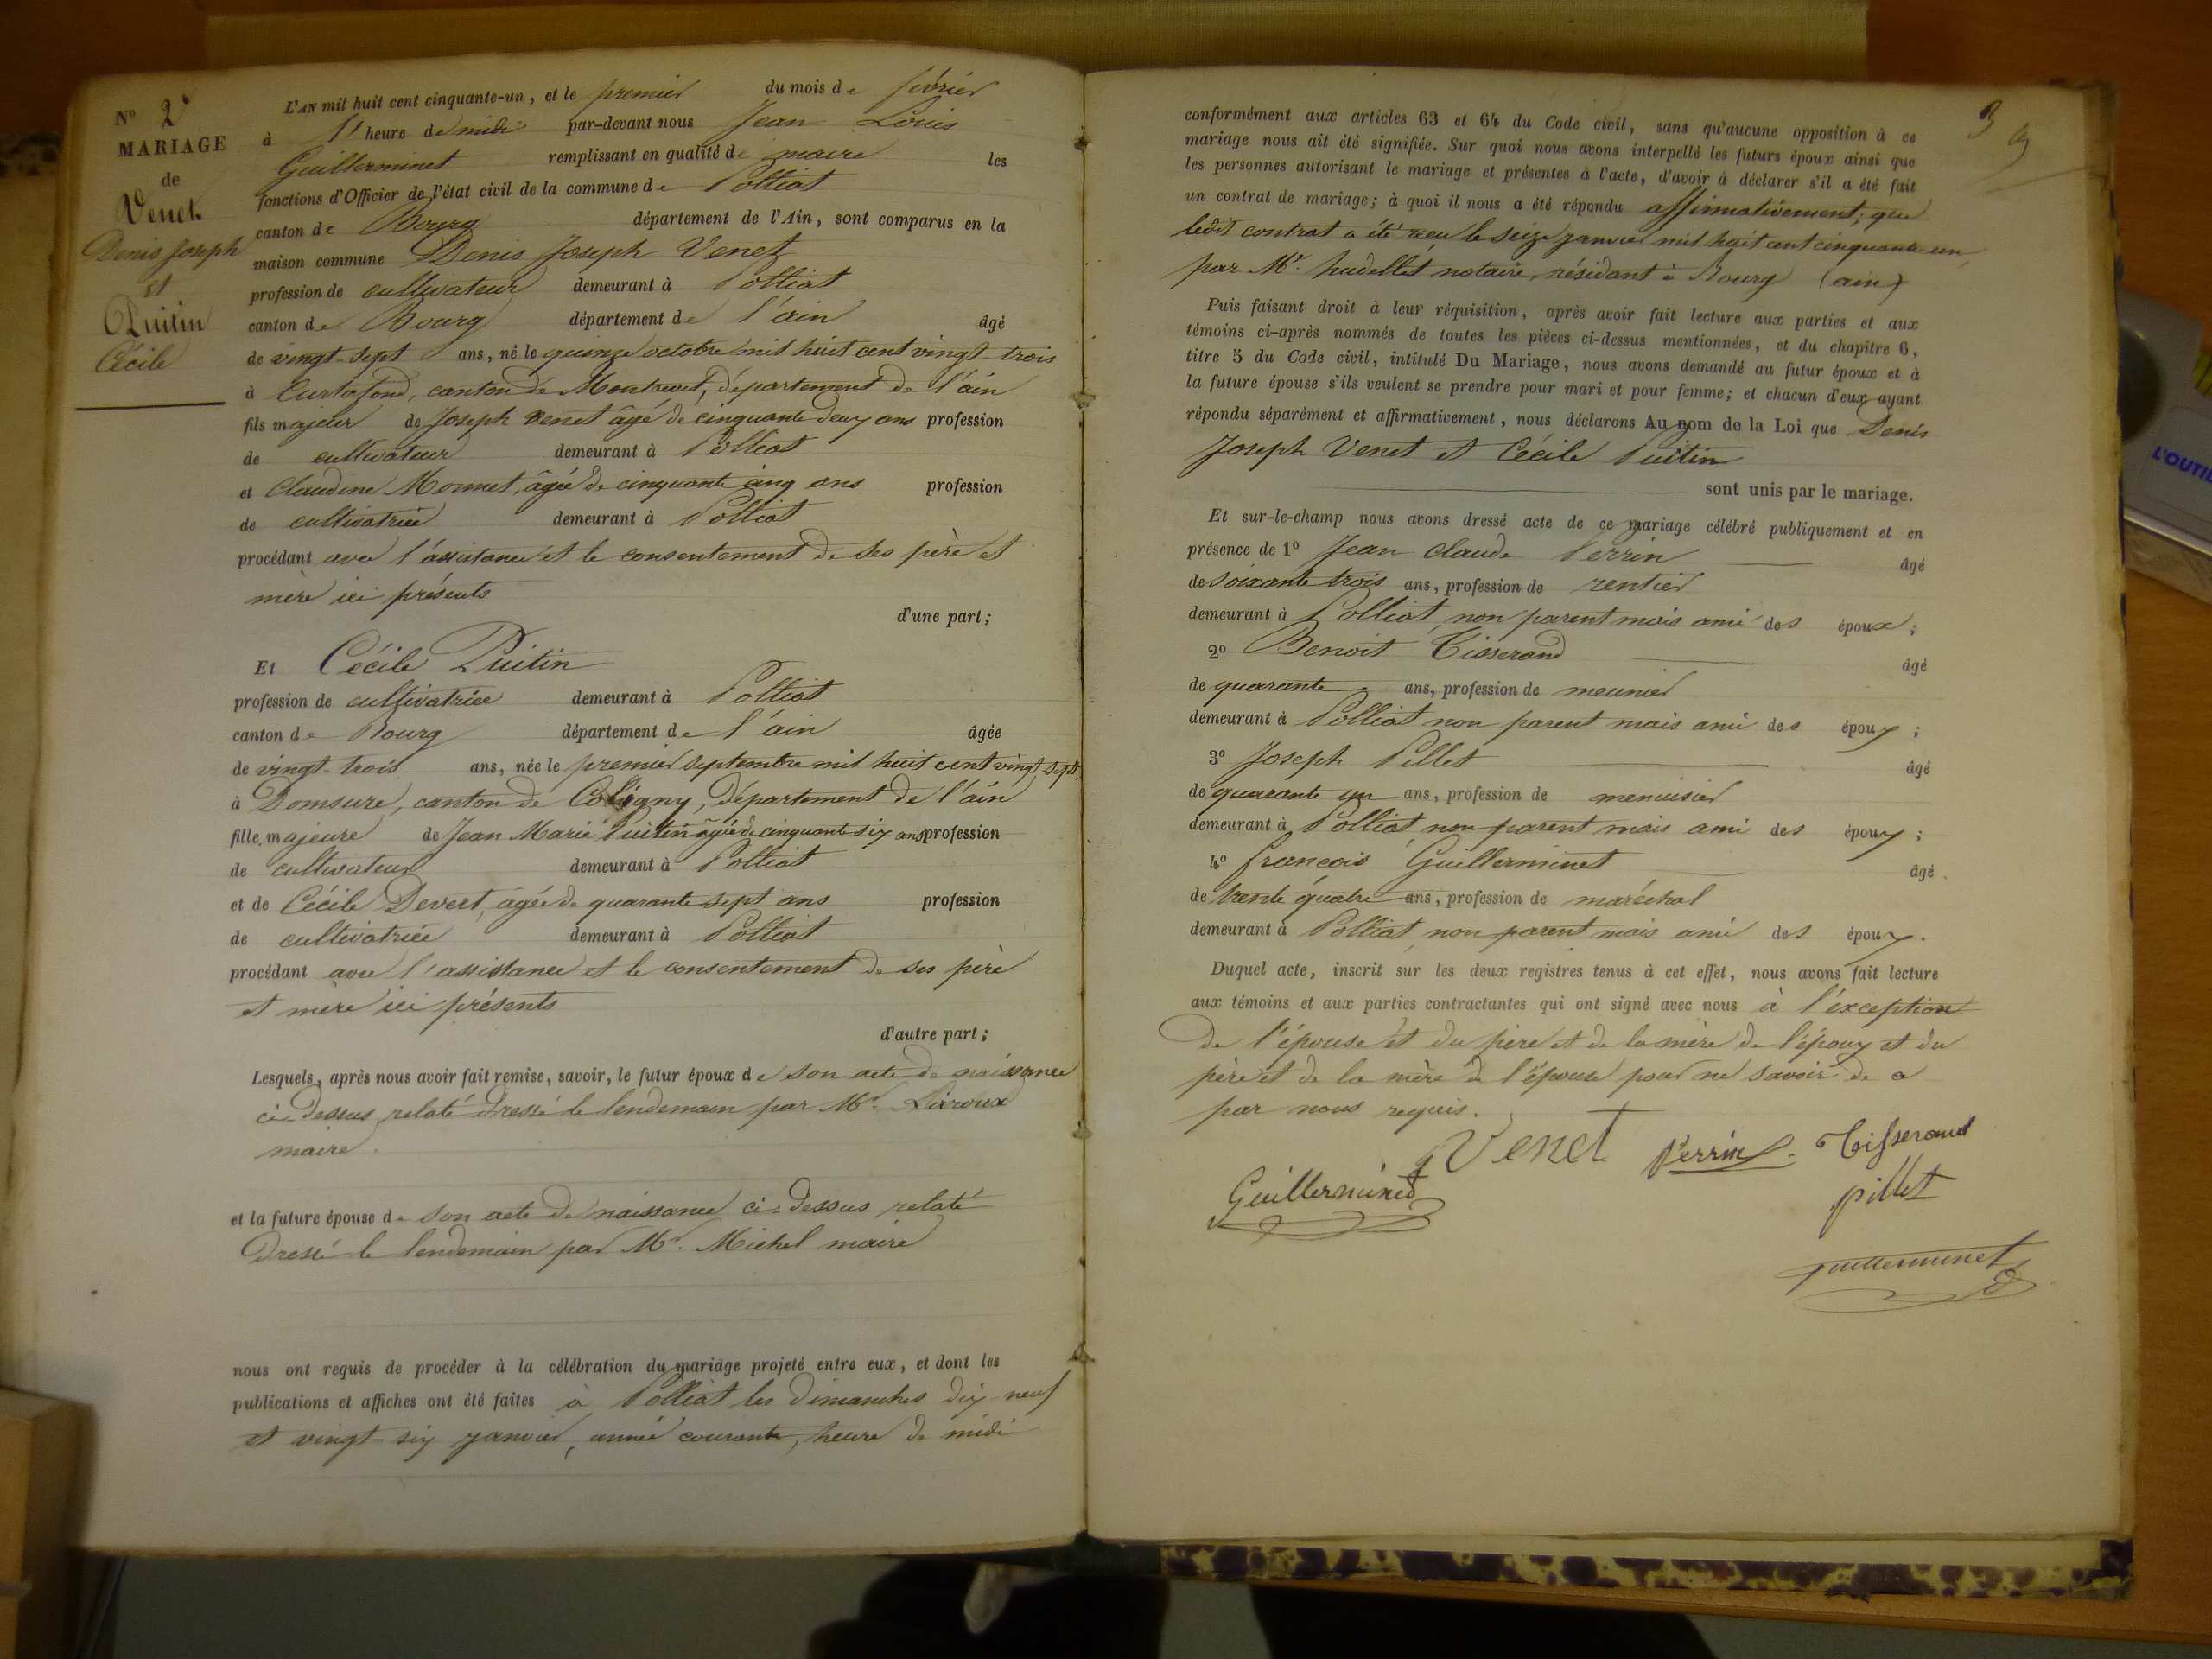 N° 2
MARIAGE
de
Venet
Denis Joseph
et
Puitin
Cécile
L'AN mil huit cent cinquante-un, et le premier du mois de février
à heure de midi par-devant nous Jean Louis
Guillerminet remplissant en qualité de maire les
fonctions d'Officier de l'état civil de la commune de Polliat
canton de Bourg département de l'Ain, sont comparus en la
maison commune Denis Joseph Venet
profession de cultivateur demeurant à Polliat
canton de Bourg département de l'ain âgé
de vingt-sept ans, né le quinze octobre mil huit cent vingt-trois
à Curtafond, canton de Montrevet, département de l'ain
fils majeur de Joseph Venet âgé de cinquante deux ans profession
de cultivateur demeurant à Polliat
et Claudine Monnet, âgée de cinquante cinq ans profession
de cultivatrice demeurant à Polliat
procédant avec l'assistance et le consentement de ses père et
mère ici présents
d'une part;
Et Cécile Puitin
profession de cultivatrice demeurant à Polliat
canton de Bourg département de l'ain âgée
de vingt-trois ans, née le premier septembre mil huit cent vingt sept
à Domsure, canton de Coligny, département de l'ain
fille majeure de Jean Marie Puitin âgé de cinquante six ans profession
de cultivateur demeurant à Polliat
et de Cécile Devert, âgée de quarante sept ans profession
de cultivatrice demeurant à Polliat
procédant avec l'assistance et le consentement de ses père
et mère ici présents
d'autre part;
Lesquels, après nous avoir fait remise, savoir, le futur époux de son acte de naissance
ci-dessus relaté dressé le lendemain par Mr.
maire.
et la future épouse de son acte de naissance ci-dessus relaté
dressé le lendemain par Mr. Michel maire
nous ont requis de procéder à la célébration du mariage projeté entre eux, et dont les
publications et affiches ont été faites à Polliat les dimanches dix-neuf
et vingt-six janvier, année courante, heure de midi
3
conformément aux articles 63 et 64 du Code civil, sans qu'aucune opposition à ce
mariage nous ait été signifiée. Sur quoi nous avons interpellé les futurs époux ainsi que
les personnes autorisant le mariage et présentes à l'acte, d'avoir à déclarer s'il a été fait
un contrat de mariage; à quoi il nous a été répondu affirmativement; que
ledit contrat a été reçu le seize janvier mil huit cent cinquante-un,
par Mr. hudellet notaire, résidant à Bourg (ain)
Puis faisant droit à leur réquisition, après avoir fait lecture aux parties et aux
témoins ci-après nommés de toutes les pièces ci-dessus mentionnées, et du chapitre 6,
titre 5 du Code civil, intitulé Du Mariage, nous avons demandé au futur époux et à
la future épouse s'ils veulent se prendre pour mari et pour femme; et chacun d'eux ayant
répondu séparément et affirmativement, nous déclarons Au nom de la Loi que Denis
Joseph Venet et Cécile Puitin
sont unis par le mariage.
Et sur-le-champ nous avons dressé acte de ce mariage célébré publiquement et en
présence de 1° Jean Claude Perrin âgé
de soixante trois ans, profession de rentier
demeurant à Polliat, non parent mais ami des époux;
2° Benoit Tisserand âgé
de quarante ans, profession de meunier
demeurant à Polliat non parent mais ami des époux;
3° Joseph Pillet âgé
de quarante un ans, profession de menuisier
demeurant à Polliat non parent mais ami des époux;
4° françois Guillerminet âgé
de trente quatre ans, profession de maréchal
demeurant à Polliat, non parent mais ami des époux.
Duquel acte, inscrit sur les deux registres tenus à cet effet, nous avons fait lecture
aux témoins et aux parties contractantes qui ont signé avec nous à l'exception
de l'épouse et du père et de la mère de l'époux et du
père et de la mère de l'épouse pour ne savoir de a
par nous requis.
Venet Perrin Tisserand
Guillerminet pillet
guillerminet
L'OUTIL